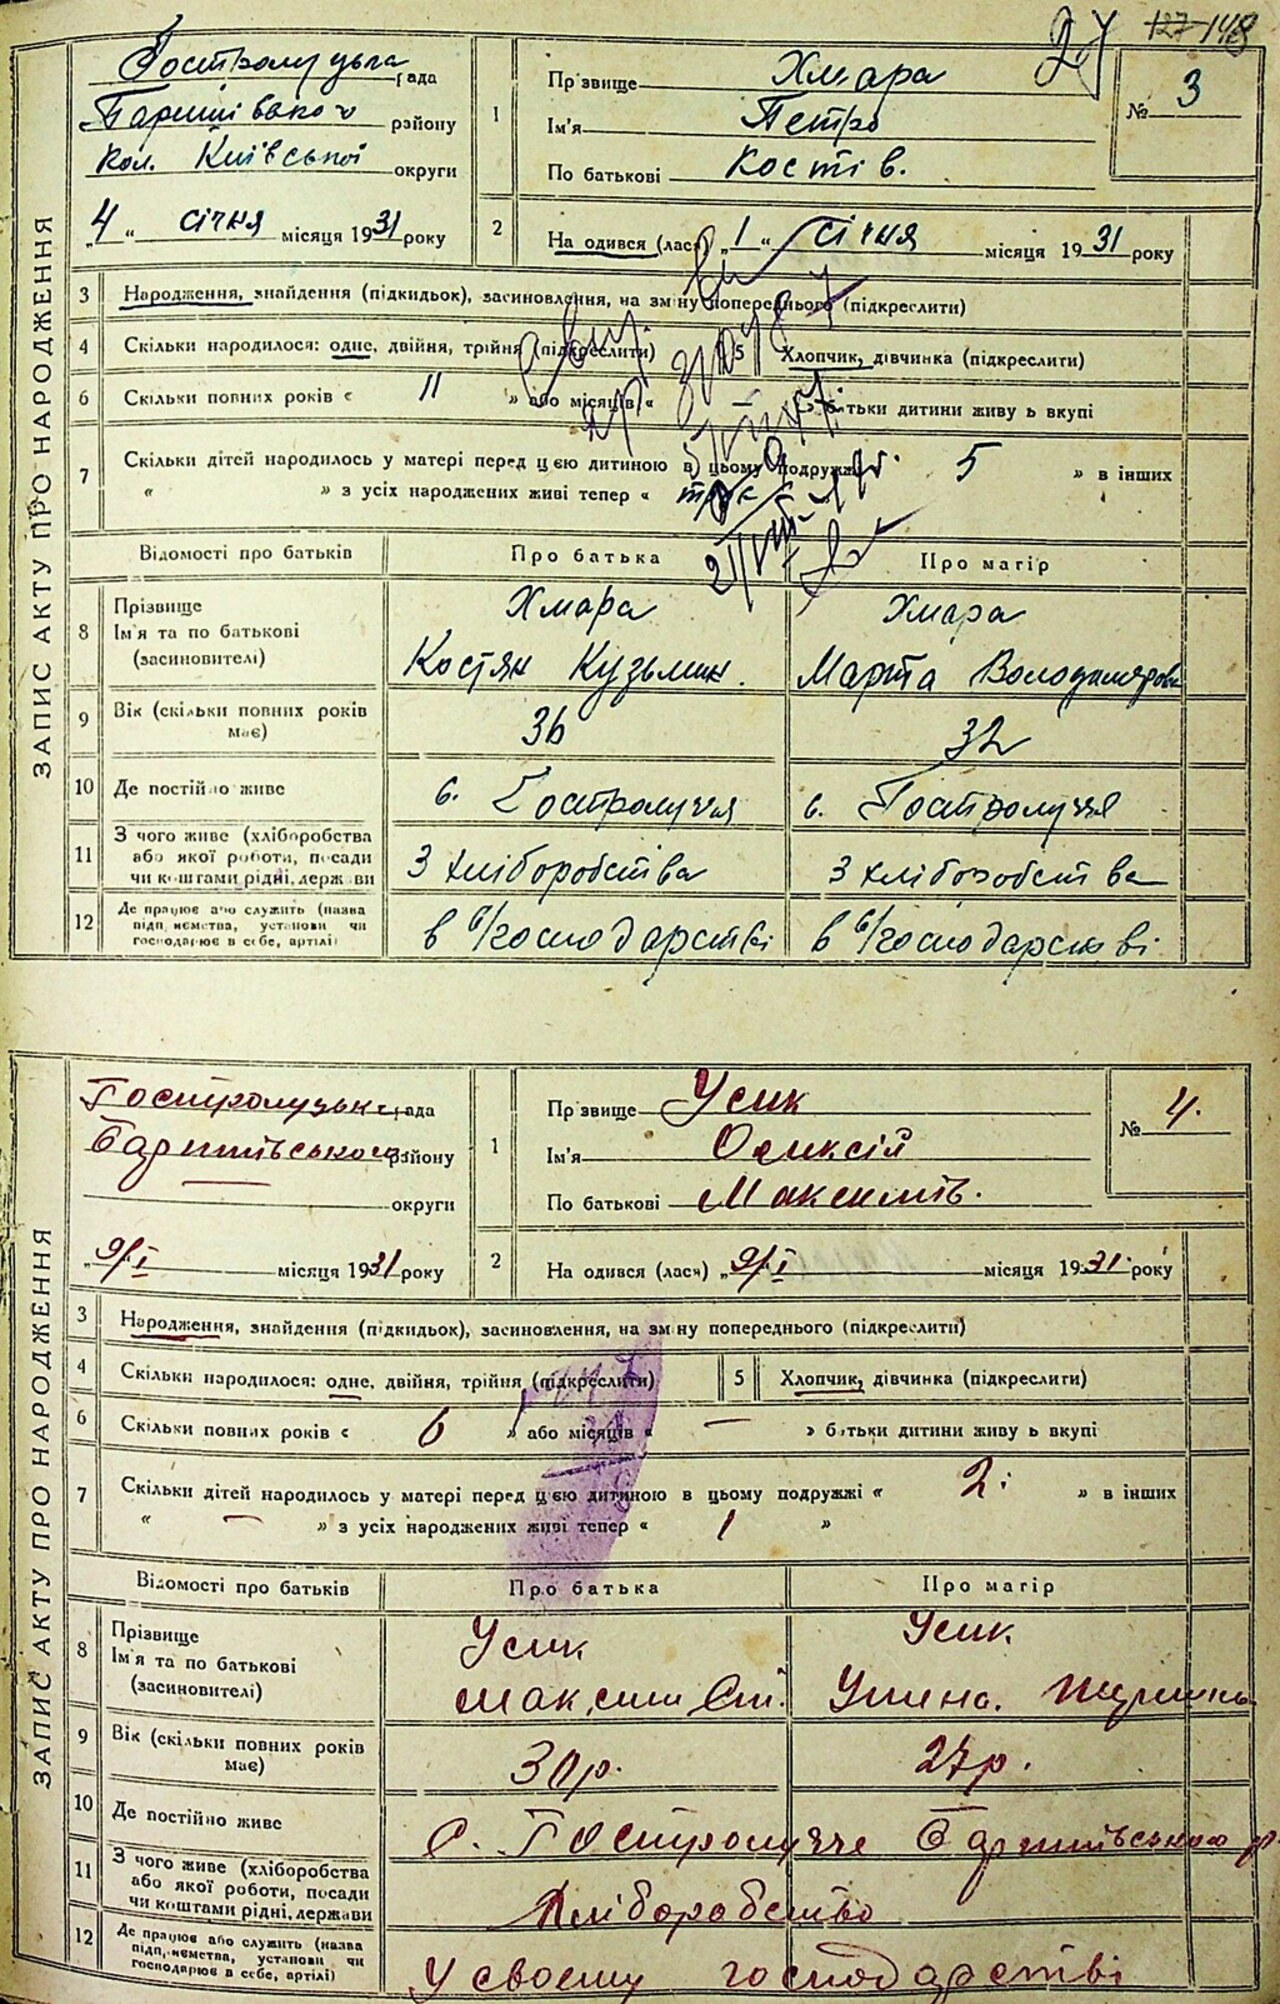 127 148
ЗАПИС АКТУ ПРО НАРОДЖЕННЯ
Гостролуцька рада
Баришівського району
кол. Київської округи
„4“ січня місяця 1931 року
1
Прізвище Хмара
Ім'я Петро
По батькові Костів.
№ 3
2
Народився (лась) „1“ січня місяця 1931 року
3 Народження, знайдення (підкидьок), засиновлення, на зміну попереднього (підкреслити)
4 Скільки народилося: одне, двійня, трійня (підкреслити) 5 Хлопчик, дівчинка (підкреслити)
6 Скільки повних років « 11 » або місяців « » батьки дитини живуть вкупі
7 Скільки дітей народилось у матері перед цією дитиною в цьому подружжі 5 » в інших
« » з усіх народжених живі тепер « троє
21/VIII
Відомості про батьків Про батька Про матір
8 Прізвище Хмара Хмара
Ім'я та по батькові
(засиновителі) Костян Кузьмин. Марта Володимирова
9 Вік (скільки повних років
має) 36 32
10 Де постійно живе с. Гостролуччя с. Гостролуччя
11 З чого живе (хліборобства
або якої роботи, посади
чи коштами рідні, держави З хліборобства З хліборобства
12 Де працює або служить (назва
підприємства, установи чи
господарює в себе, артілі) в с/господарстві в с/господарстві
ЗАПИС АКТУ ПРО НАРОДЖЕННЯ
Гостролузька рада
Баришівського району
округи
„9/I місяця 1931 року
1
Прізвище Усик
Ім'я Оликсій
По батькові Максимів.
№ 4.
2
Народився (лась) „9/I місяця 1931. року
3 Народження, знайдення (підкидьок), засиновлення, на зміну попереднього (підкреслити)
4 Скільки народилося: одне, двійня, трійня (підкреслити) 5 Хлопчик, дівчинка (підкреслити)
6 Скільки повних років « 6 » або місяців « — » батьки дитини живуть вкупі
7 Скільки дітей народилось у матері перед цією дитиною в цьому подружжі « 2 » в інших
« — » з усіх народжених живі тепер « 1 »
Відомості про батьків Про батька Про матір
8 Прізвище Усик Усик
Ім'я та по батькові
(засиновителі) Максим Ст.
9 Вік (скільки повних років
має) 30р. 27р.
10 Де постійно живе С. Гостролучче Баришівського р.
11 З чого живе (хліборобства
або якої роботи, посади
чи коштами рідні, держави Хліборобство
12 Де працює або служить (назва
підприємства, установи чи
господарює в себе, артілі) У своєму господарстві